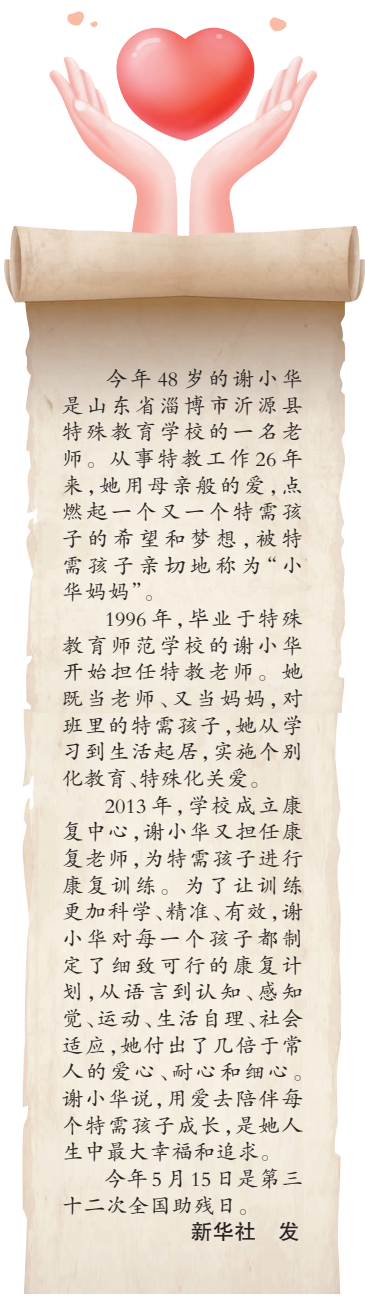 今年48岁的谢小华
是山东省淄博市沂源县
特殊教育学校的一名老
师。从事特教工作26年
来,她用母亲般的爱,点
燃起一个又一个特需孩
子的希望和梦想,被特
需孩子亲切地称为“小
华妈妈”。
1996年,毕业于特殊
教育师范学校的谢小华
开始担任特教老师。她
既当老师、又当妈妈,对
班里的特需孩子,她从学
习到生活起居,实施个别
化教育、特殊化关爱。
2013年,学校成立康
复中心,谢小华又担任康
复老师,为特需孩子进行
康复训练。为了让训练
更加科学、精准、有效,谢
小华对每一个孩子都制
定了细致可行的康复计
划,从语言到认知、感知
觉、运动、生活自理、社会
适应,她付出了几倍于常
人的爱心、耐心和细心。
谢小华说,用爱去陪伴每
个特需孩子成长,是她人
生中最大幸福和追求。
今年5月15日是第三
十二次全国助残日。
新华社 发